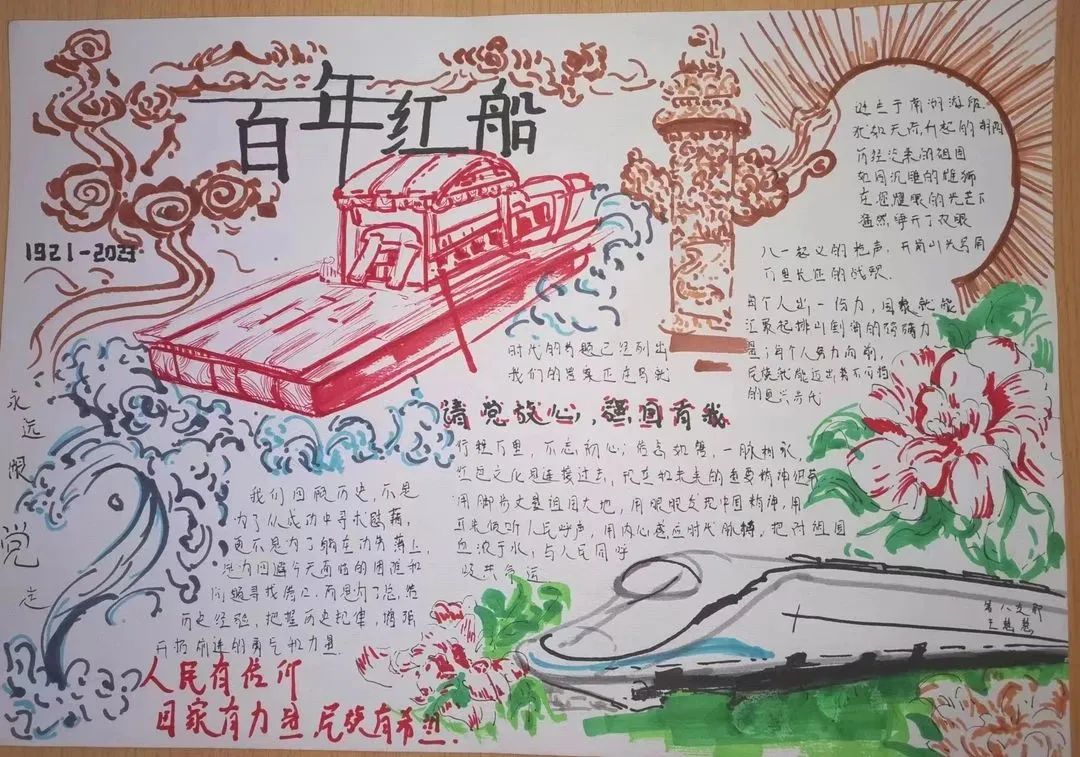 百年红船
1921-2021
屹立于南湖游船
犹如天亮升起的朝阳
历经沧桑的祖国
如同沉睡的雄狮
在您耀眼的光芒下
猛然睁开了双眼
八一起义的枪声，井岗山头号角
万里长征的战歌
每个人出一份力，国家就能
汇聚起排山倒海的磅礴力
量；每个人努力向前，
民族就能迈出势不可挡
的复兴步伐
时代的考题已经列出
我们的答案正在写就
请党放心，强国有我
行程万里，不忘初心；信念如磐，一脉相承，
红色文化是连接过去、现在和未来的重要精神纽带
用脚步丈量祖国大地，用眼眼发现中国精神，用
耳朵倾听人民呼声，用内心感应时代脉搏，把对祖国
血浓于水、与人民同呼
吸共命运
永远跟党走
我们回顾历史，不是
为了从成功中寻求慰藉，
更不是为了躺在功劳薄上，
是为回避今天面临的困难和
问题寻找借口，而是为了总结
历史经验，把握历史规律，增强
开拓前进的勇气和力量.
人民有信仰
国家有力量 民族有希望.